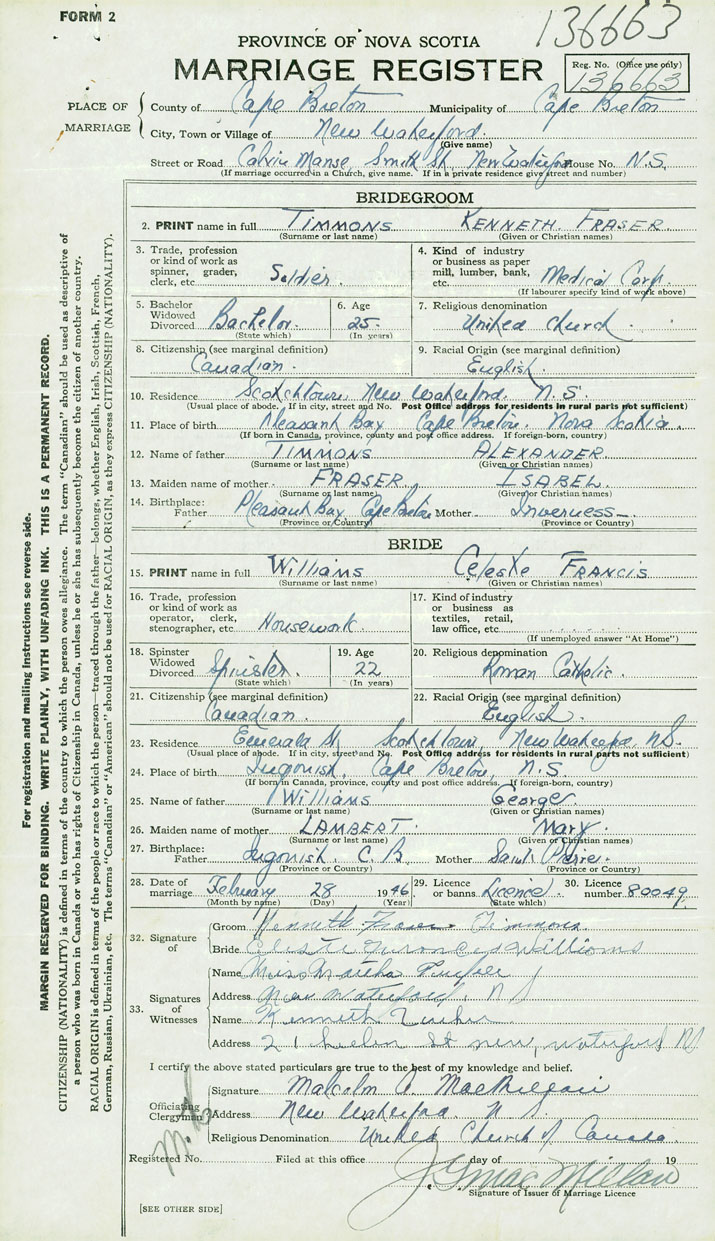 FORM 2
136663
PROVINCE OF NOVA SCOTIA
MARRIAGE REGISTER
Reg. No. (Office use only)
136663
PLACE OF MARRIAGE
County of Cape Breton Municipality of Cape Breton
City, Town or Village of New Waterford
(Give name)
Street or Road Calvin Manse, Smith St. New Waterford House No. N.S.
(If marriage occurred in a Church, give name. If in a private residence give street and number)
BRIDEGROOM
2. PRINT name in full TIMMONS KENNETH FRASER
(Surname or last name) (Given or Christian names)
3. Trade, profession or kind of work as spinner, grader, clerk, etc Soldier.
4. Kind of industry or business as paper mill, lumber, bank, etc. Medical Corp.
(If labourer specify kind of work above)
5. Bachelor Widowed Divorced Bachelor.
(State which)
6. Age 25
(In years)
7. Religious denomination United Church.
8. Citizenship (see marginal definition) Canadian.
9. Racial Origin (see marginal definition) English.
10. Residence Scotchtown, New Waterford. N.S.
(Usual place of abode. If in city, street and No. Post Office address for residents in rural parts not sufficient)
11. Place of birth Pleasant Bay Cape Breton. Nova Scotia.
(If born in Canada, province, county and post office address. If foreign-born, country)
12. Name of father TIMMONS ALEXANDER
(Surname or last name) (Given or Christian names)
13. Maiden name of mother FRASER ISABEL
(Surname or last name) (Given or Christian names)
14. Birthplace: Father Pleasant Bay Cape Breton Mother Inverness
(Province or Country) (Province or Country)
BRIDE
15. PRINT name in full Williams Celeste FRANCIS
(Surname or last name) (Given or Christian names)
16. Trade, profession or kind of work as operator, clerk, stenographer, etc Housework.
17. Kind of industry or business as textiles, retail, law office, etc.
(If unemployed answer "At Home")
18. Spinster Widowed Divorced Spinster.
(State which)
19. Age 22
(In years)
20. Religious denomination Roman Catholic.
21. Citizenship (see marginal definition) Canadian.
22. Racial Origin (see marginal definition) English.
23. Residence Emerald St Scotchtown, New Waterford N.S.
(Usual place of abode. If in city, street and No. Post Office address for residents in rural parts not sufficient)
24. Place of birth Ingonish, Cape Breton, N.S.
(If born in Canada, province, county and post office address. If foreign-born, country)
25. Name of father Williams George.
(Surname or last name) (Given or Christian names)
26. Maiden name of mother LAMBERT. Mary.
(Surname or last name) (Given or Christian names)
27. Birthplace: Father Ingonish. C.B. Mother Saint Pierre.
(Province or Country) (Province or Country)
28. Date of marriage February 28 1946
(Month by name) (Day) (Year)
29. Licence or banns Licence
(State which)
30. Licence number 80049
32. Signature of
Groom Kenneth Fraser Timmons
Bride Celeste Francis Williams
33. Signatures of Witnesses
Name Miss Martha
Address New Waterford, N S
Name Kenneth
Address 21 St new, waterford NS
I certify the above stated particulars are true to the best of my knowledge and belief.
Officiating Clergyman
Signature Malcolm A.
Address New Waterford N S.
Religious Denomination United Church of Canada.
Registered No. Filed at this office day of 19
J G MacMillan
Signature of Issuer of Marriage Licence
[SEE OTHER SIDE]
For registration and mailing instructions see reverse side.
MARGIN RESERVED FOR BINDING. WRITE PLAINLY, WITH UNFADING INK. THIS IS A PERMANENT RECORD.
CITIZENSHIP (NATIONALITY) is defined in terms of the country to which the person owes allegiance. The term "Canadian" should be used as descriptive of
a person who was born in Canada or who has rights of Citizenship in Canada, unless he or she has subsequently become the citizen of another country.
RACIAL ORIGIN is defined in terms of the people or race to which the person—traced through the father—belongs, whether English, Irish, Scottish, French,
German, Russian, Ukrainian, etc. The terms "Canadian" or "American" should not be used for RACIAL ORIGIN, as they express CITIZENSHIP (NATIONALITY).